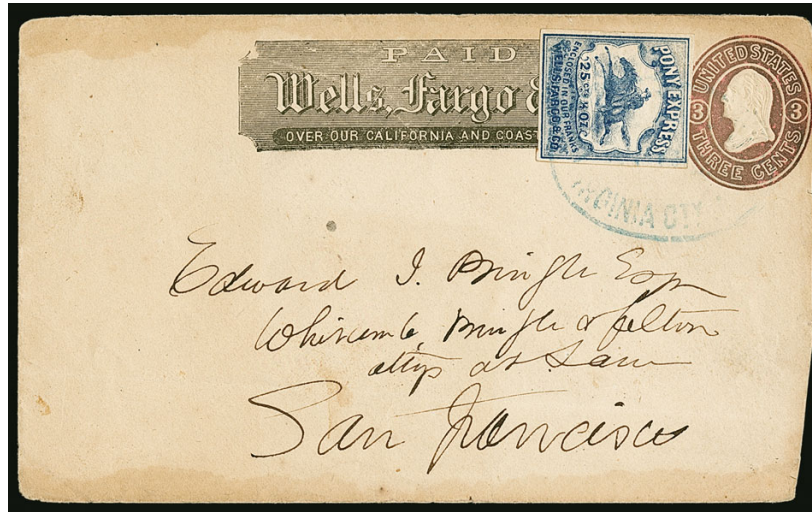 PAID
Wells, Fargo &
OVER OUR CALIFORNIA AND COAST
PONY EXPRESS
25 cts ½ OZ
ENCLOSED IN OUR FRANKS
WELLS, FARGO & CO.
UNITED STATES
3 3
THREE CENTS
VIRGINIA CTY
Edward J. Pringle Esqr
Whitcomb, Pringle & Felton
attys at Law
San Francisco